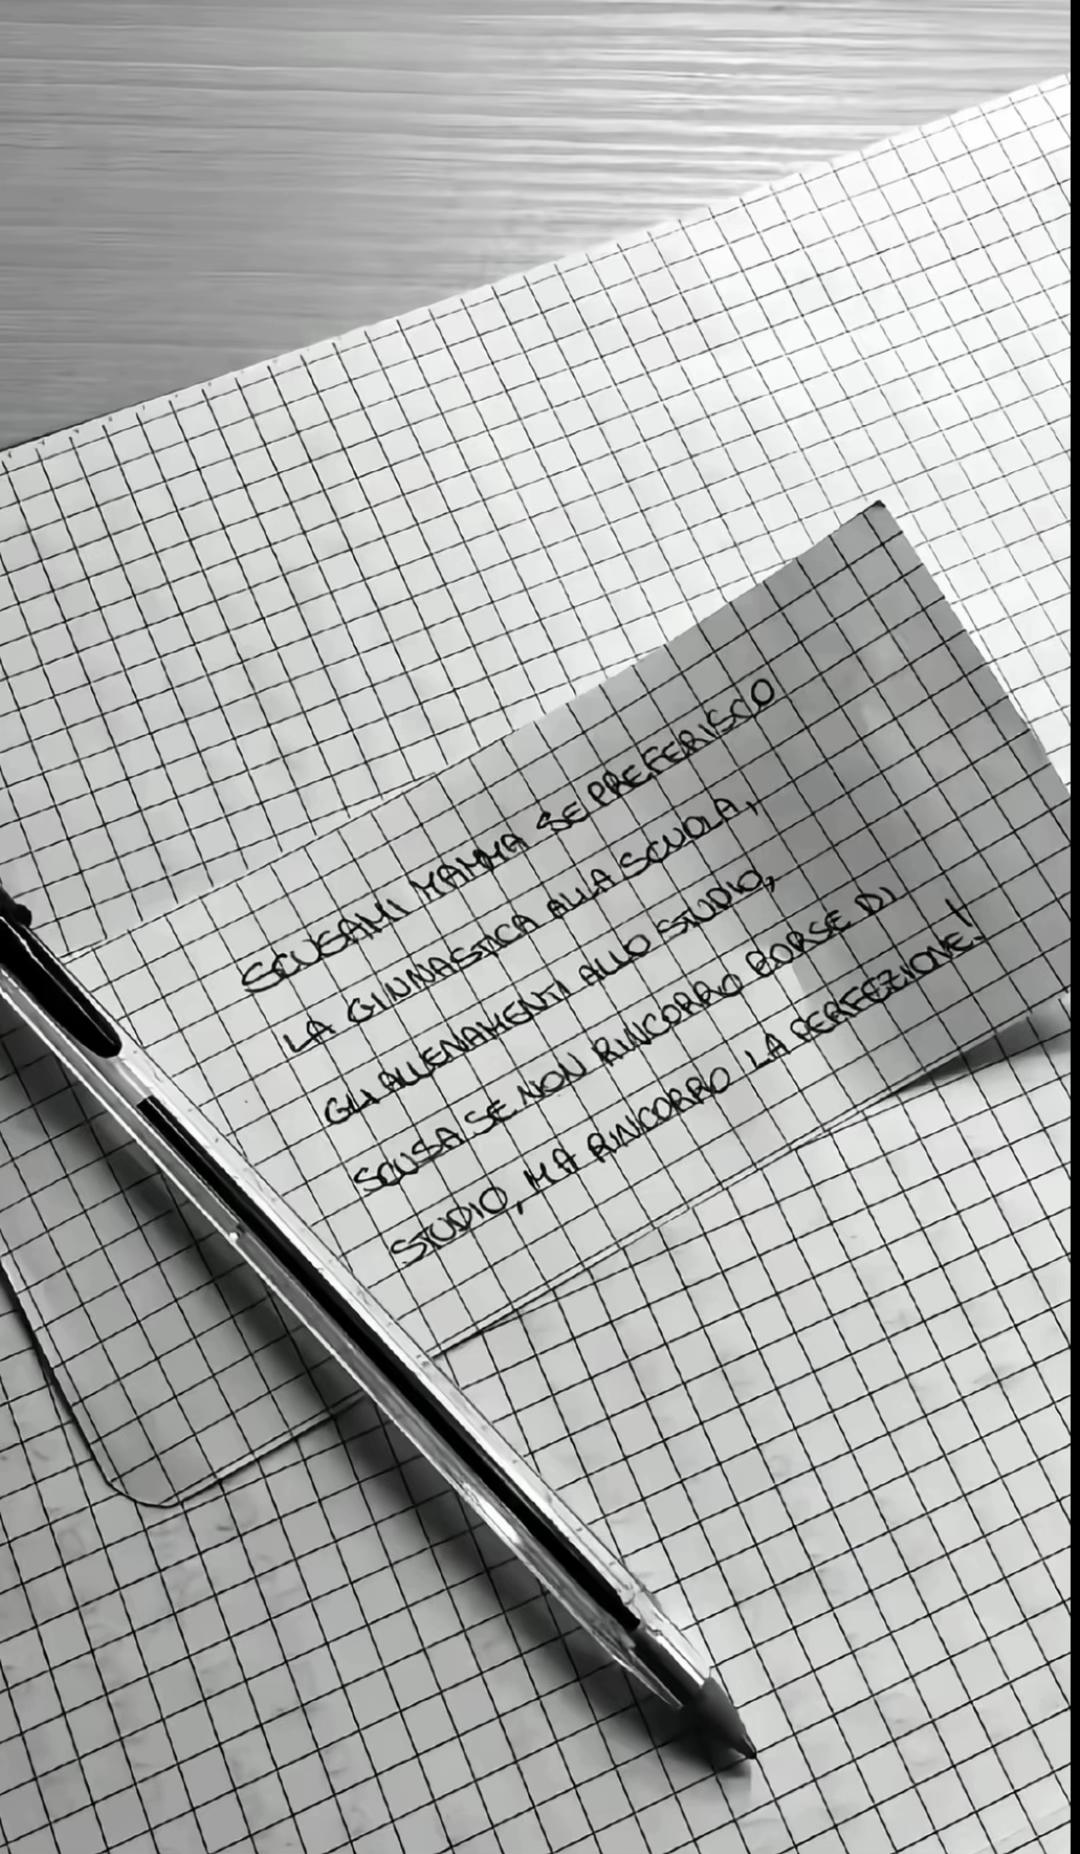 SCUSAMI MAMMA SE PREFERISCO
LA GINNASTICA ALLA SCUOLA,
GLI ALLENAMENTI ALLO STUDIO,
SCUSA SE NON RINCORRO BORSE DI
STUDIO, MA RINCORRO LA PERFEZIONE!